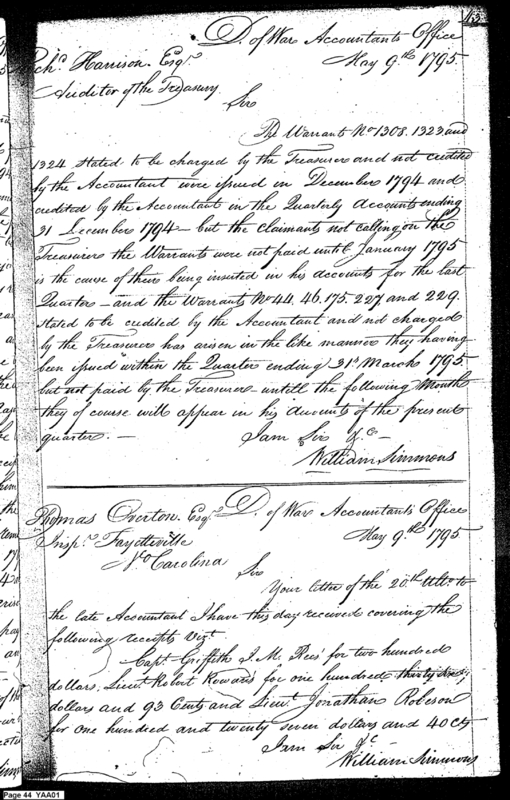 D. of War Accountants Office
May 9th 1795
Richd Harrison. Esqr
Auditor of the Treasury
Sir
The Warrants No 1308. 1323 and
1324 stated to be charged by the Treasurer and not credited
by the Accountant were issued in December 1794 and
credited by the Accountant in the Quarterly accounts ending
31 December 1794 – but the claimants not calling on the
Treasurer the Warrants were not paid until January 1795
is the cause of theirs being inserted in his accounts for the last
Quarter – and the Warrants No 44. 46. 175. 227 and 229.
stated to be credited by the Accountant and not charged
by the Treasurer has arisen in the like manner they having
been issued within the Quarter ending 31st March 1795.
but not paid by the Treasurer untill the following Month
they of course will appear in his accounts of the present
quarter. –
I am Sir &c –
William Simmons
Thomas Overton. Esqr D. of War Accountants Office
Inspr Fayetteville May 9th 1795
No Carolina
Sir
Your letter of the 20th Ulto to
the late Accountant I have this day received covering the
following receipts Vizt
Capt. Griffith J. M. Rees for two hundred
dollars, Lieut Robert Rowan for one hundred thirty six
dollars and 93 Cents and Lieut Jonathan Robeson
for one hundred and twenty seven dollars and 40 Cts
I am Sir &c
William Simmons
Page 44 YAA01